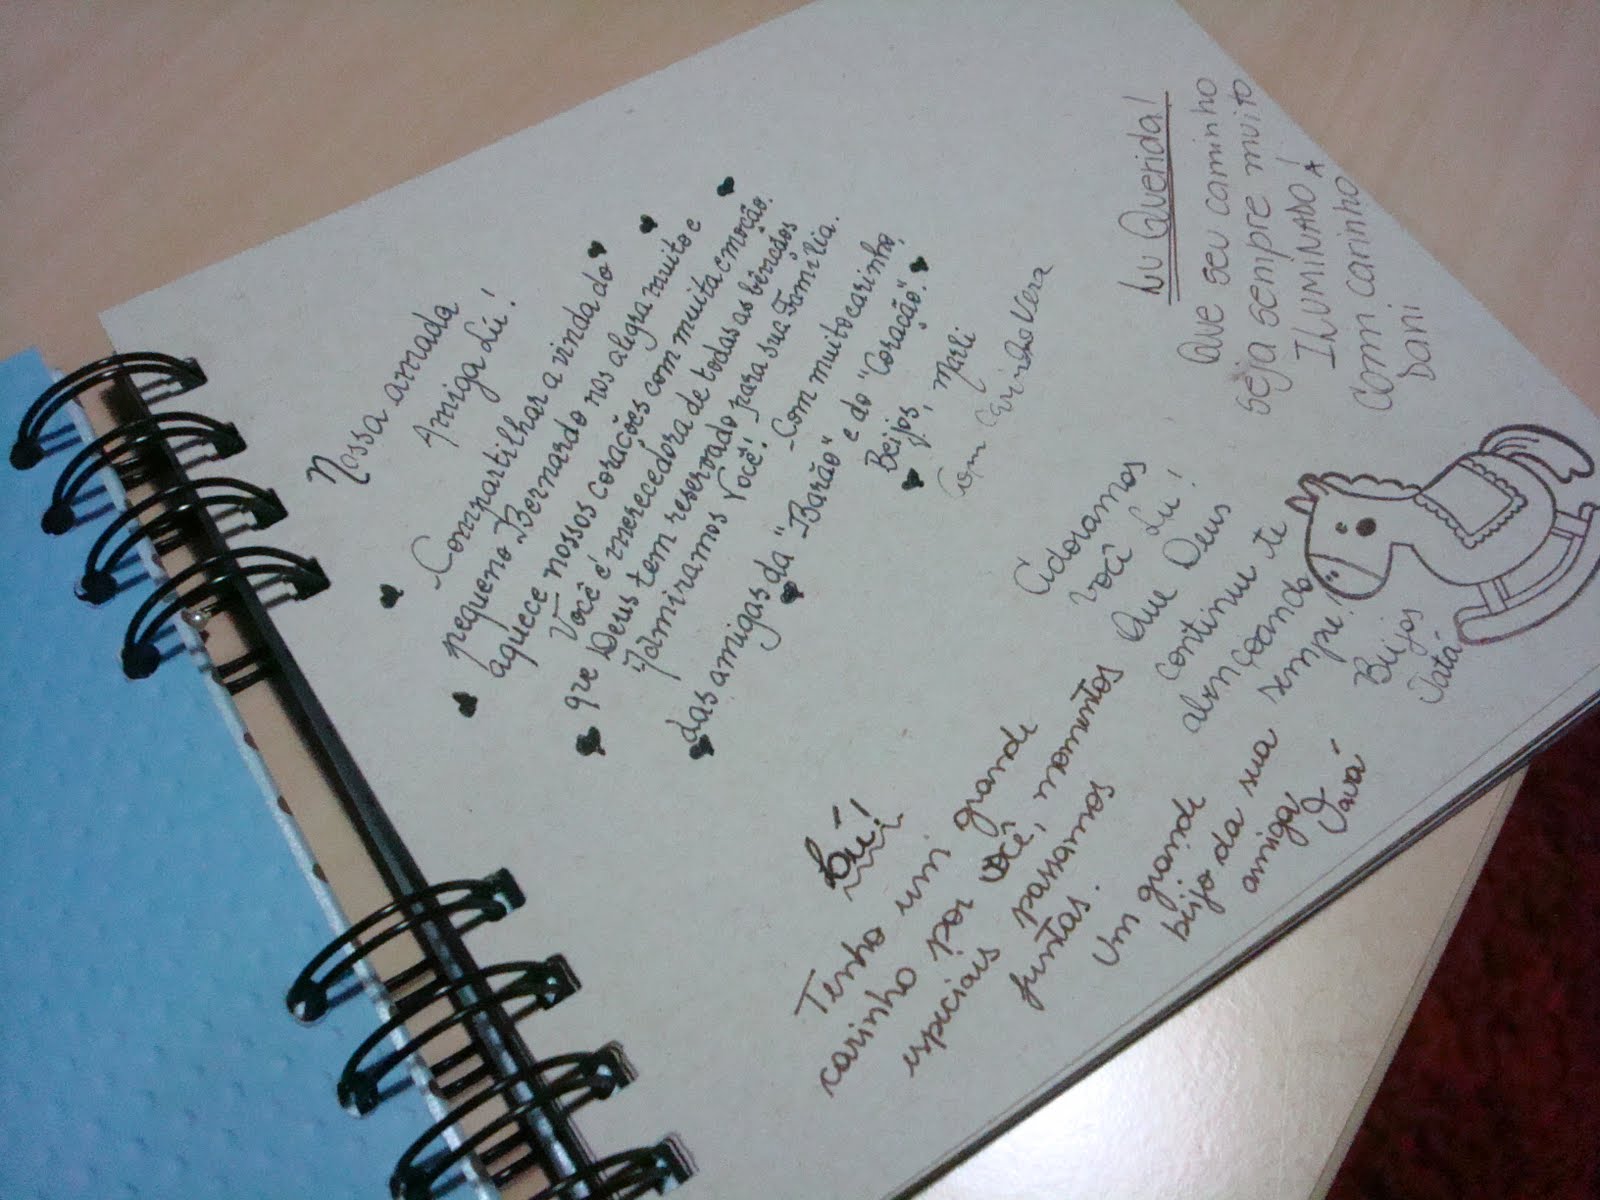 Nossa amada
Amiga Lú!
Compartilhar a vinda do
pequeno Bernardo nos alegra muito e
aquece nossos corações com muita emoção.
Você é merecedora de todas as bênçãos
que Deus tem reservado para sua Família.
Admiramos Você! Com muito carinho,
das amigas da "Barão" e do "Coração".
Beijos, Marli
Com Carinho Vera
Lu Querida!
Que seu caminho
seja sempre muito
ILUMINADO!
Com carinho
Dani
Adoramos
você Lu!
Que Deus
continue te
abençoando
sempre!
Beijos
Tatá
Lú!
Tenho um grande
carinho por você, momentos
especiais passamos
juntas.
Um grande
beijo da sua
amiga,
Vavá